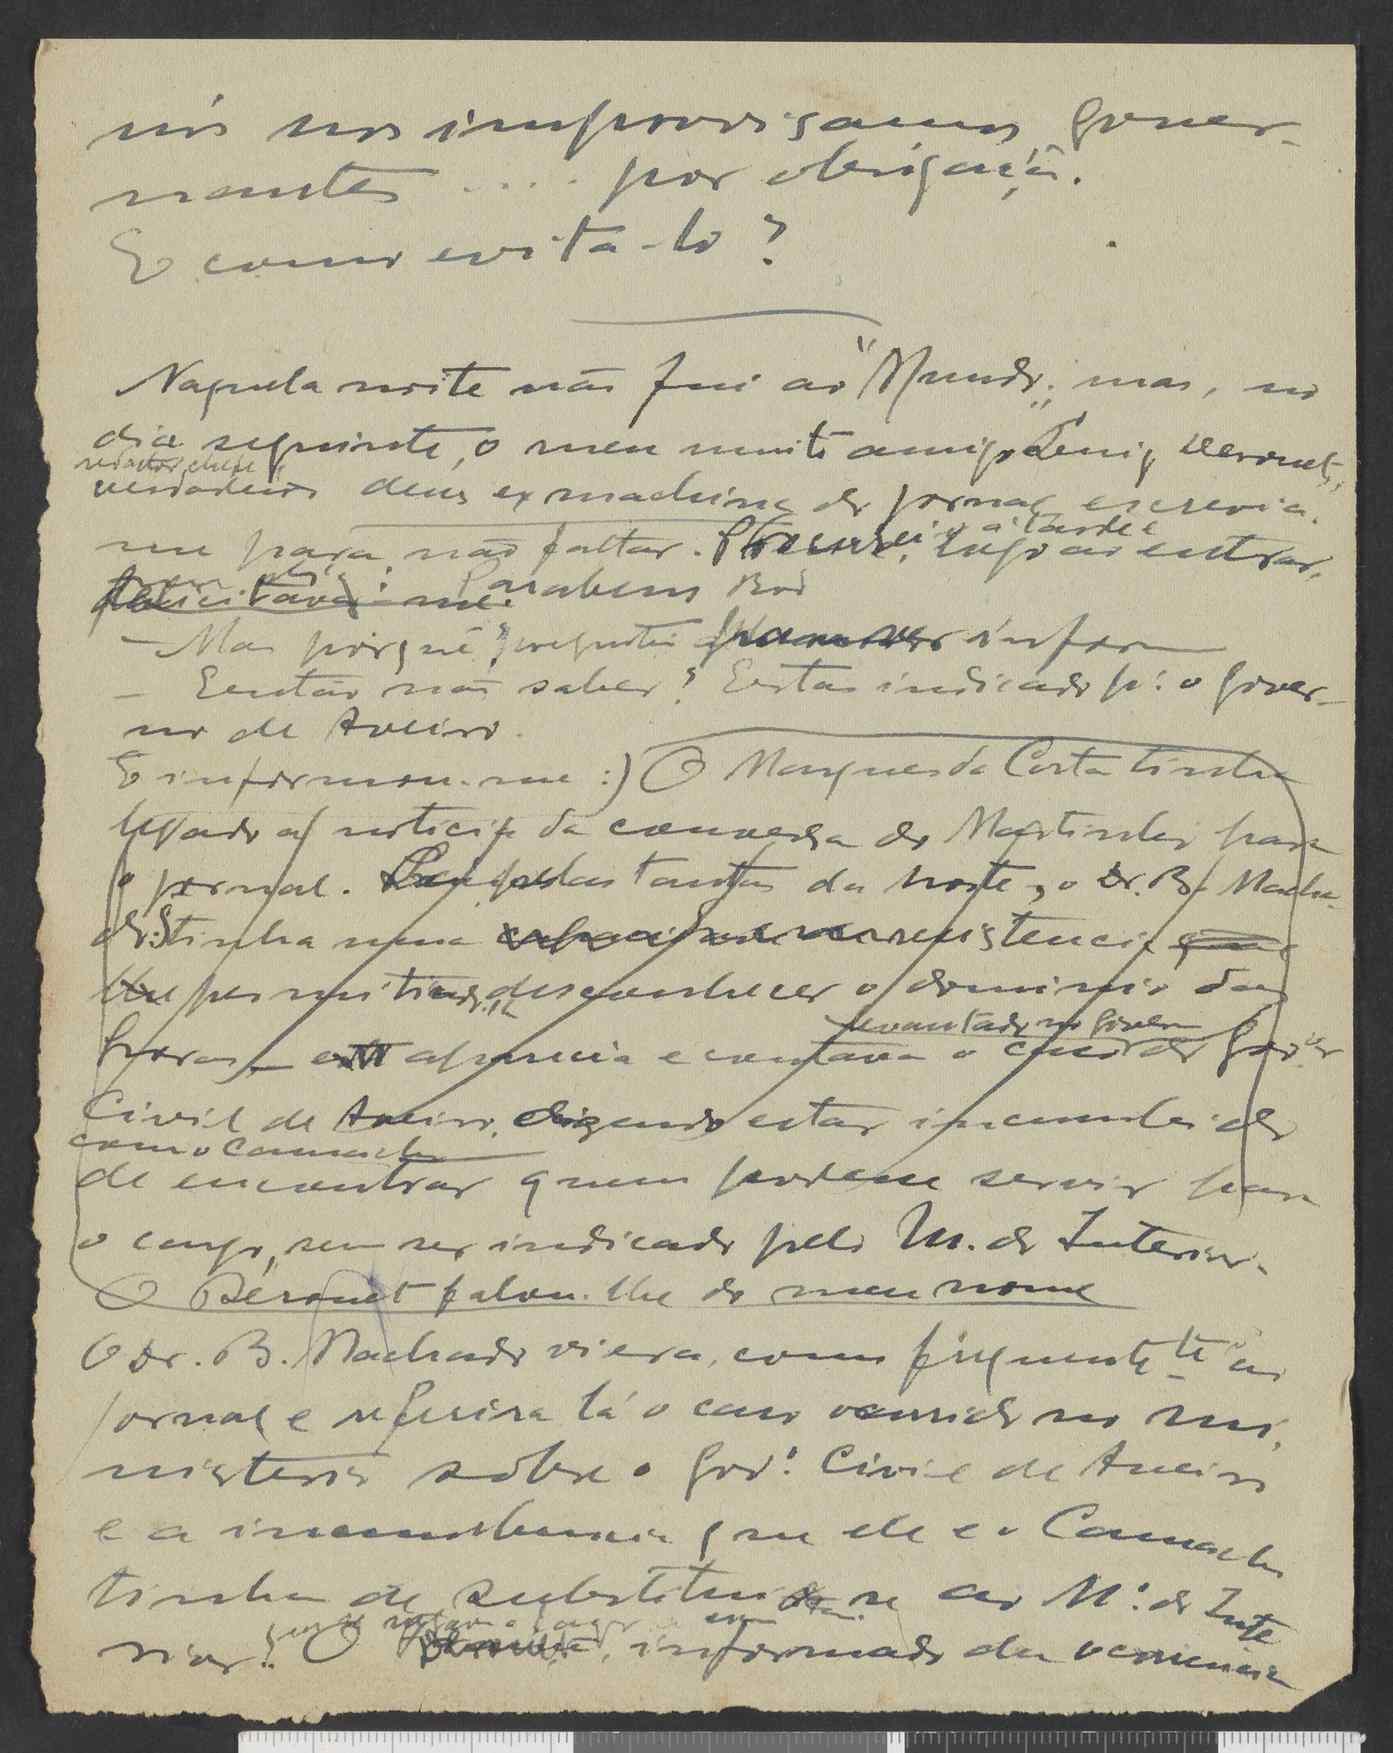 nós nos improvisamos gover-
nantes .... por obrigação.
E como evita-lo?
Naquela noite não fui ao "Mundo"; mas, no
dia seguinte, o meu muito amigo Luis Derouet,
redactor chefe,
verdadeiro deus ex machina do jornal escrevia-
me para não faltar. á tarde e logo ao entrar,
felicitava-me: Parabens
— Mas porquê? preguntei
— Então não sabes? Estás indicado p.ª o gover-
no de Aveiro.
E informou-me:) O Marques da Costa tinha
levado a noticia da conversa do Martinho para
o jornal. pelas tantas da noite, o Dr. B. Macha-
do: tinha uma resistencia que
lhe permitia desconhecer o dominio das
horas — aparecia e contava o caso do Gov.or
levantado no governo
Civil de Aveiro, dizendo estar incumbido
com o Camacho
de encontrar quem podesse servir para
o cargo, sem ser indicado pelo M. do Interior.
O Derouet falou-lhe do meu nome
O Dr. B. Machado viera, como frequente.te ao
jornal e referira lá o caso ocorrido no mi-
nisterio sôbre o Gov.º Civil de Aveiro
e a incumbencia que ele e o Camacho
tinham de substituir-se ao M.º do Inte
rior. O informado da ocorrencia